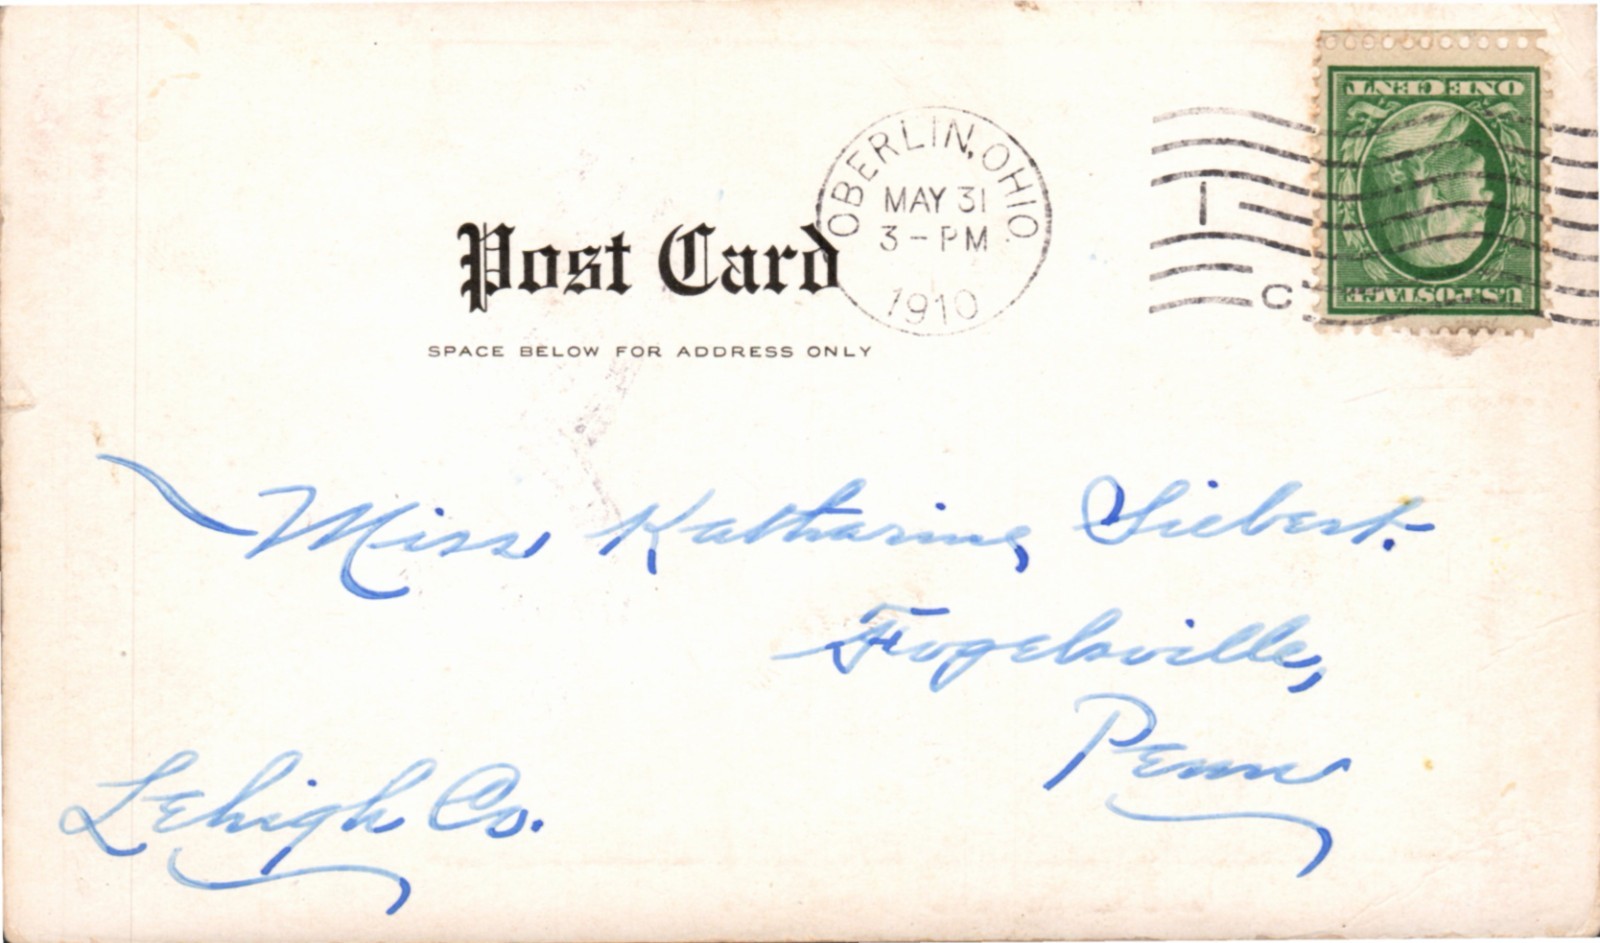 OBERLIN, OHIO.
MAY 31
3-PM
1910
1
C
ONE CENT
U.S. POSTAGE
Post Card
SPACE BELOW FOR ADDRESS ONLY
Miss Katharine Siebert.
Fogelsville,
Penna
Lehigh Co.